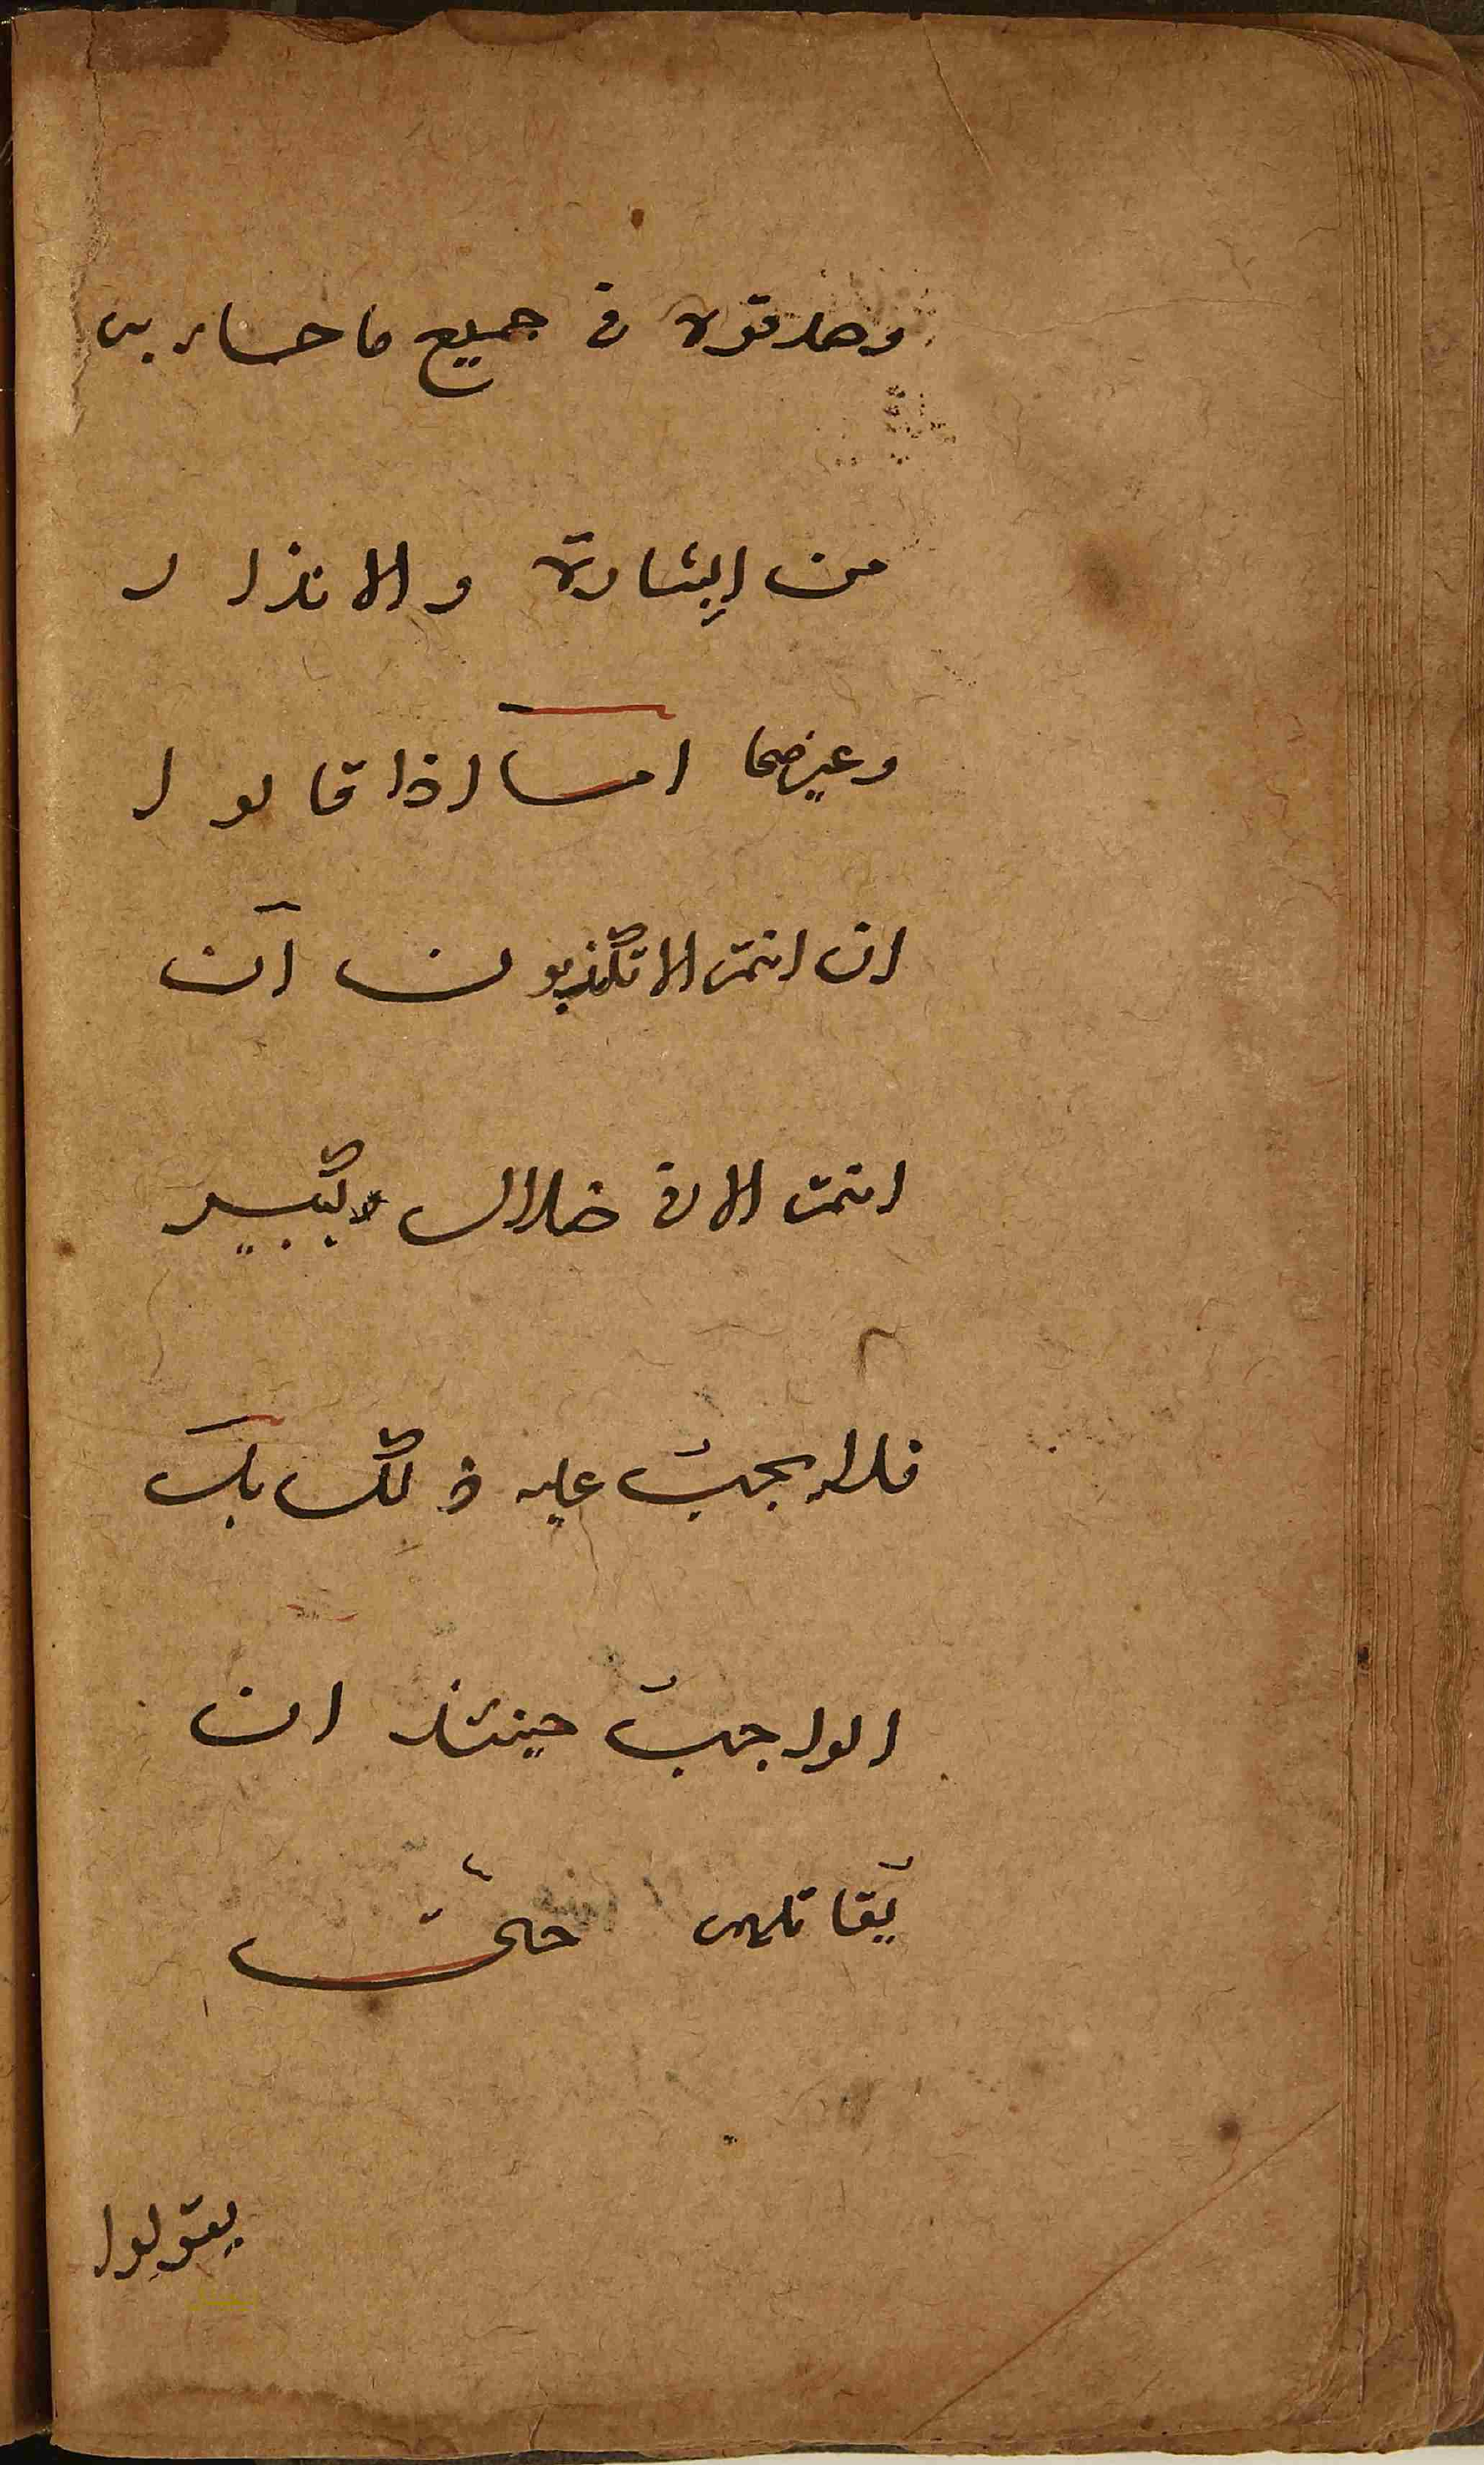 وصدقوه في جميع ما جاء به
من البشارة والانذار
وغيرهما امـا اذا قالوا
ان انتم الا تكذبون ان
انتم الا في ضلال كبير
فلا يجب عليه ذلك بل
الواجب حينئذ ان
يقاتلهم حتى
يقولوا